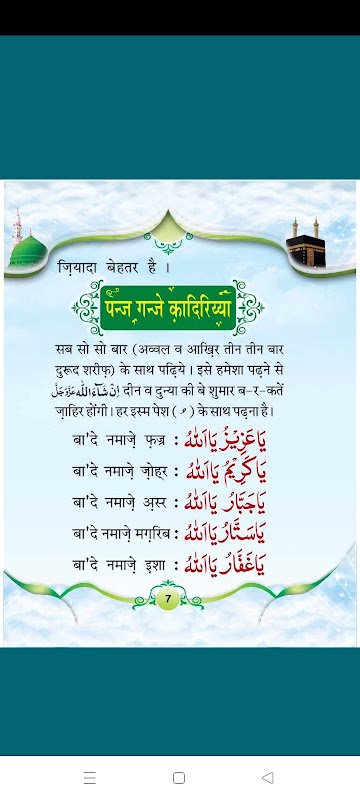 ज़ियादा बेहतर है ।
पन्ज गन्जे क़ादिरिय्या
सब सो सो बार (अव्वल व आख़िर तीन तीन बार
दुरूद शरीफ़) के साथ पढ़िये । इसे हमेशा पढ़ने से
اِنْ شَآءَاللّٰه عَزَّوَجَلَّ दीन व दुन्या की बे शुमार ब-र-कतें
ज़ाहिर होंगी। हर इस्म पेश ( ُ ) के साथ पढ़ना है।
बा'दे नमाजे़ फ़ज्र : يَاعَزِيْزُ يَااَللّٰهُ
बा'दे नमाजे़ ज़ोहर : يَاكَرِيْمُ يَااَللّٰهُ
बा'दे नमाजे़ अ़स्र : يَاجَبَّارُ يَااَللّٰهُ
बा'दे नमाजे़ मग़रिब : يَاسَتَّارُ يَااَللّٰهُ
बा'दे नमाजे़ इशा : يَاغَفَّارُ يَااَللّٰهُ
7